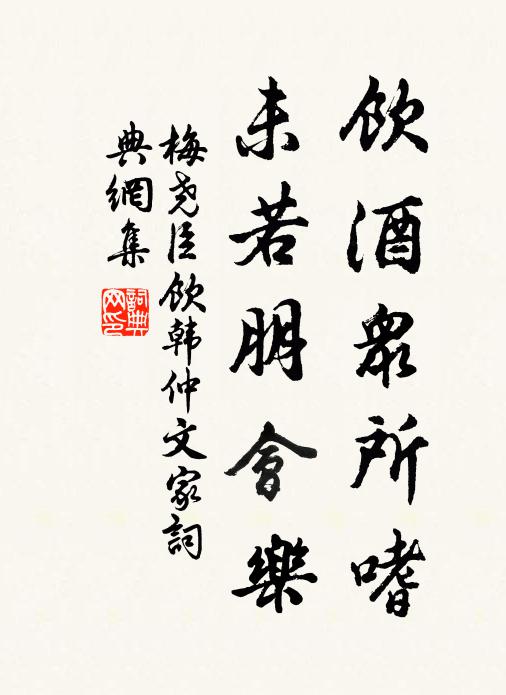 饮酒衆所嗜
未若朋會樂
梅尧臣饮韩仲文家詞
典網集
詞典
网印